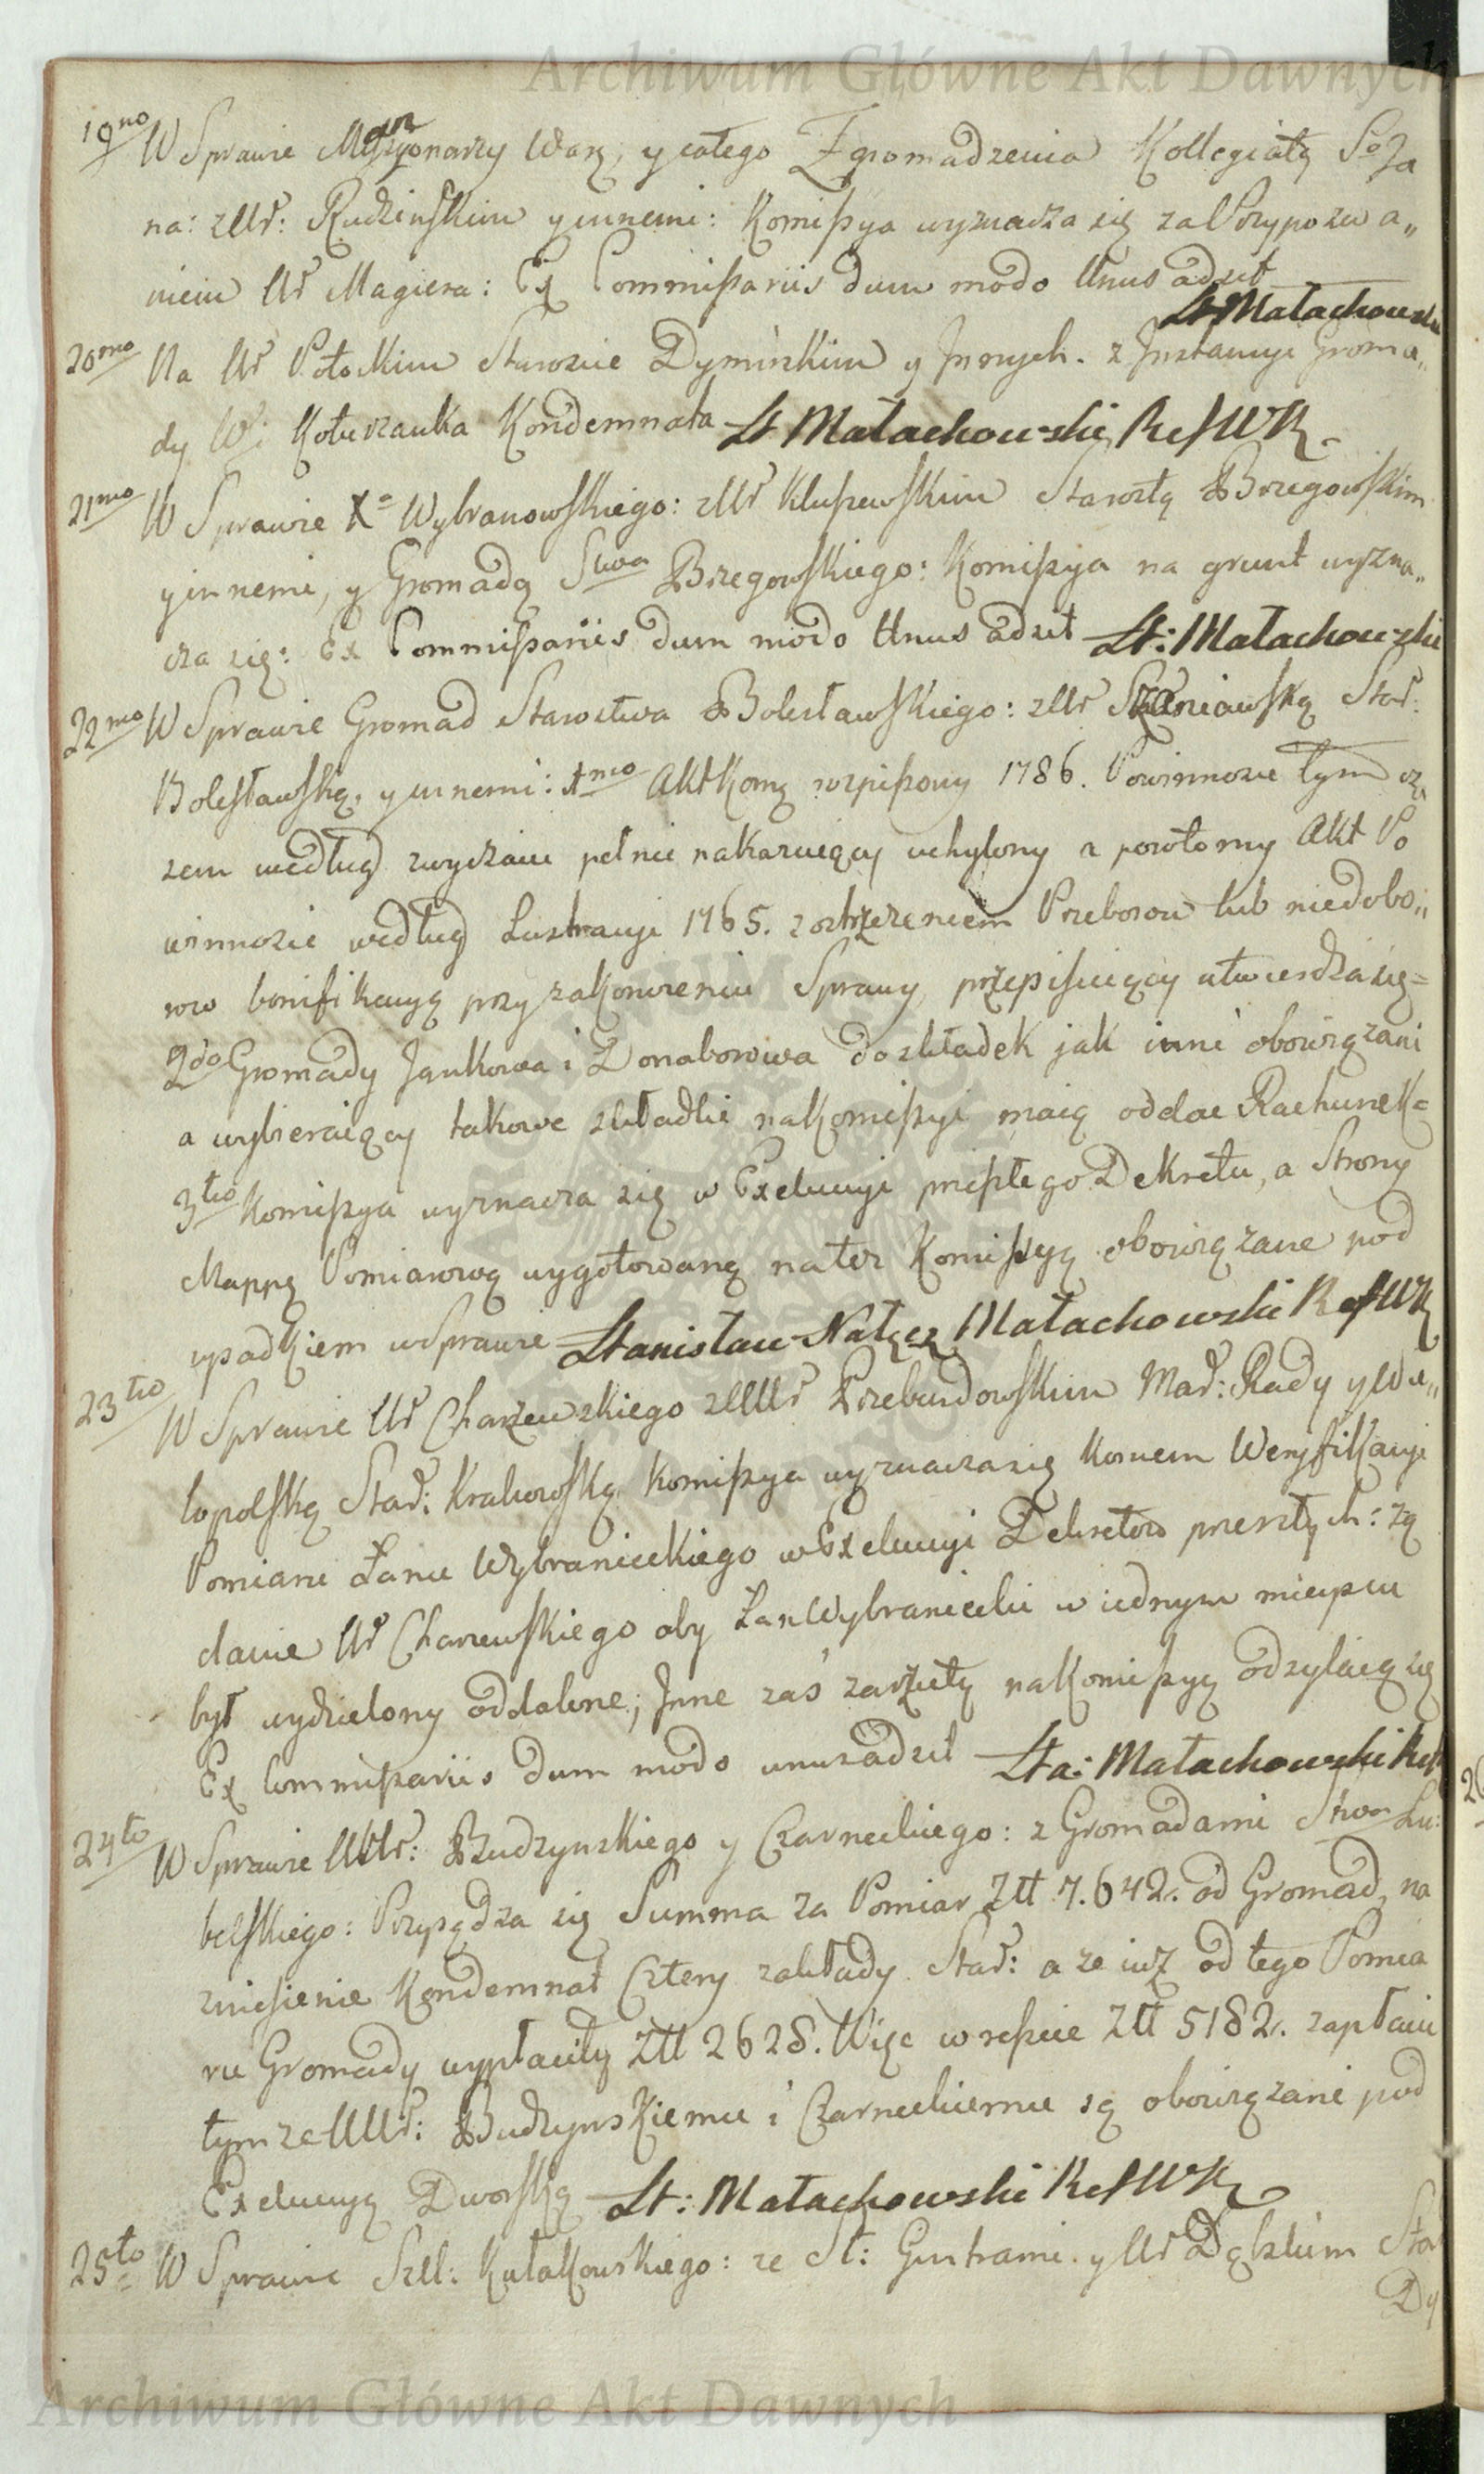 Archiwum Główne Akt Dawnych
19no W Sprawie Mansyonarzy Warz, y całego Zgromadzenia Kollegiaty So Ja
na: z Ur: Rudzinskim y innemi: Komissya wyznacza się za Przypozwa„
niem Ur Magiera: Ex Commissariis dum modo Unus adsit
St Małachowski
20mo Na Ur Potockim Staroscie Dyminskim y Innych. z Instancyi Groma„
dy Wi Kołuczanka Kondemnata St Małachowski Ref WK
21mo W Sprawie Xa Wybranowskiego: z Ur Kluszewskim Starostą Brzegowskim
y innemi, y Gromadą Stwa Brzegowskiego: Komissya na grunt wyzna„
cza się: Ex Commissariis dum modo Unus adsit St: Małachowski
22mo W Sprawie Gromad Starostwa Bolesławskiego: z Ur Szeniawską Star:
Bolesławską, y innemi: 1mo Akt Komą rozpisowy 1786. Powinnosie tym cza
sem według zwyczaiu pełnić nakazuiący uchylony a powtorny Akt Po
winnosie według Lustracyi 1765. z ostrzezeniem Przeborow lub niedobo„
row bonifikacyą przy zakonczeniu Sprawy, przepisuiący utwierdza się=
2do Gromady Jankowa i Donaborowa do składek jak inni obowiązani
a wybieraiący takowe składki na Komissyi maią oddac Rachunek=
3tio Komissya wyznacza się w Exekucyi przeszłego Dekretu, a Strony
Mappę Pomiarową wygotowaną na tęz Komissyą obowiązane pod
upadkiem w Sprawie Stanisław Nałęcz Małachowski Ref WK
23tio W Sprawie Ur Charzewskiego z UUr Przebendowskim Mar: Rady y Wie„
lopolską Star: Krakowską Komissya wyznacza się koncem Weryfikacyi
Pomiaru Łanu Wybranieckiego w Exekucyi Dekretow przeszłych: zą
danie Ur Charzewskiego aby Łan Wybraniecki w iednym mieyscu
był wydzielony oddalone; Inne zaś zarzuty na Komissyą odsylaią się
Ex Commissariis dum modo unus adsit Sta: Małachowski Ref
24to W Sprawie UUr: Budzynskiego y Czarneckiego: z Gromadami Stwa Lu:
belskiego: Przysądza się Summa za Pomiar Złł 7.642. od Gromad, na
zniesienie Kondemnat Cztery zakłady Star: a ze iuz od tego Pomia
ru Gromady wypłaciły Złł 2628. Więc w resście Złł 5182. zapłacic
tymze UUr: Budzynskiemu i Czarneckiemu są obowiązani pod
Exekucyą Dworską St: Małachowski Ref WK
25to W Sprawie Szll: Kułakowskiego: ze St: Guttrami y Ur Dąbskim Star
Dy
Archiwum Główne Akt Dawnych